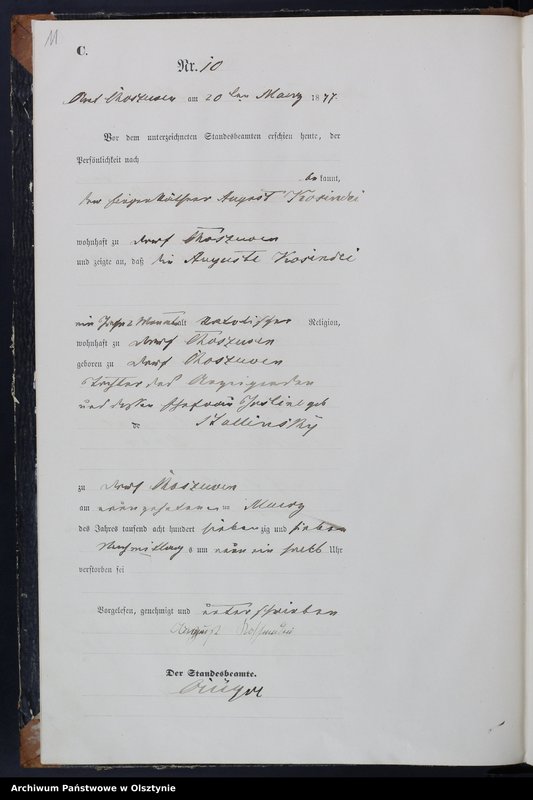 11
C.
Nr. 10
am 20 ten März 1877.
Vor dem unterzeichneten Standesbeamten erschien heute, der
Persönlichkeit nach
be kannt,
den August Kosinski
wohnhaft zu Dorf
und zeigte an, daß die Auguste Kosinski
ein Jahr 2 Monat alt katolischer Religion,
wohnhaft zu Dorf
geboren zu Dorf
Tochter des Anzeigenden
und dessen Ehefrau geb
Stallinsky
zu Dorf
am neunzehnten März
des Jahres tausend acht hundert sieben zig und sieben
Nachmittag s um neun ein halb Uhr
verstorben sei
Vorgelesen, genehmigt und unterschrieben
August
Der Standesbeamte.
Archiwum Państwowe w Olsztynie